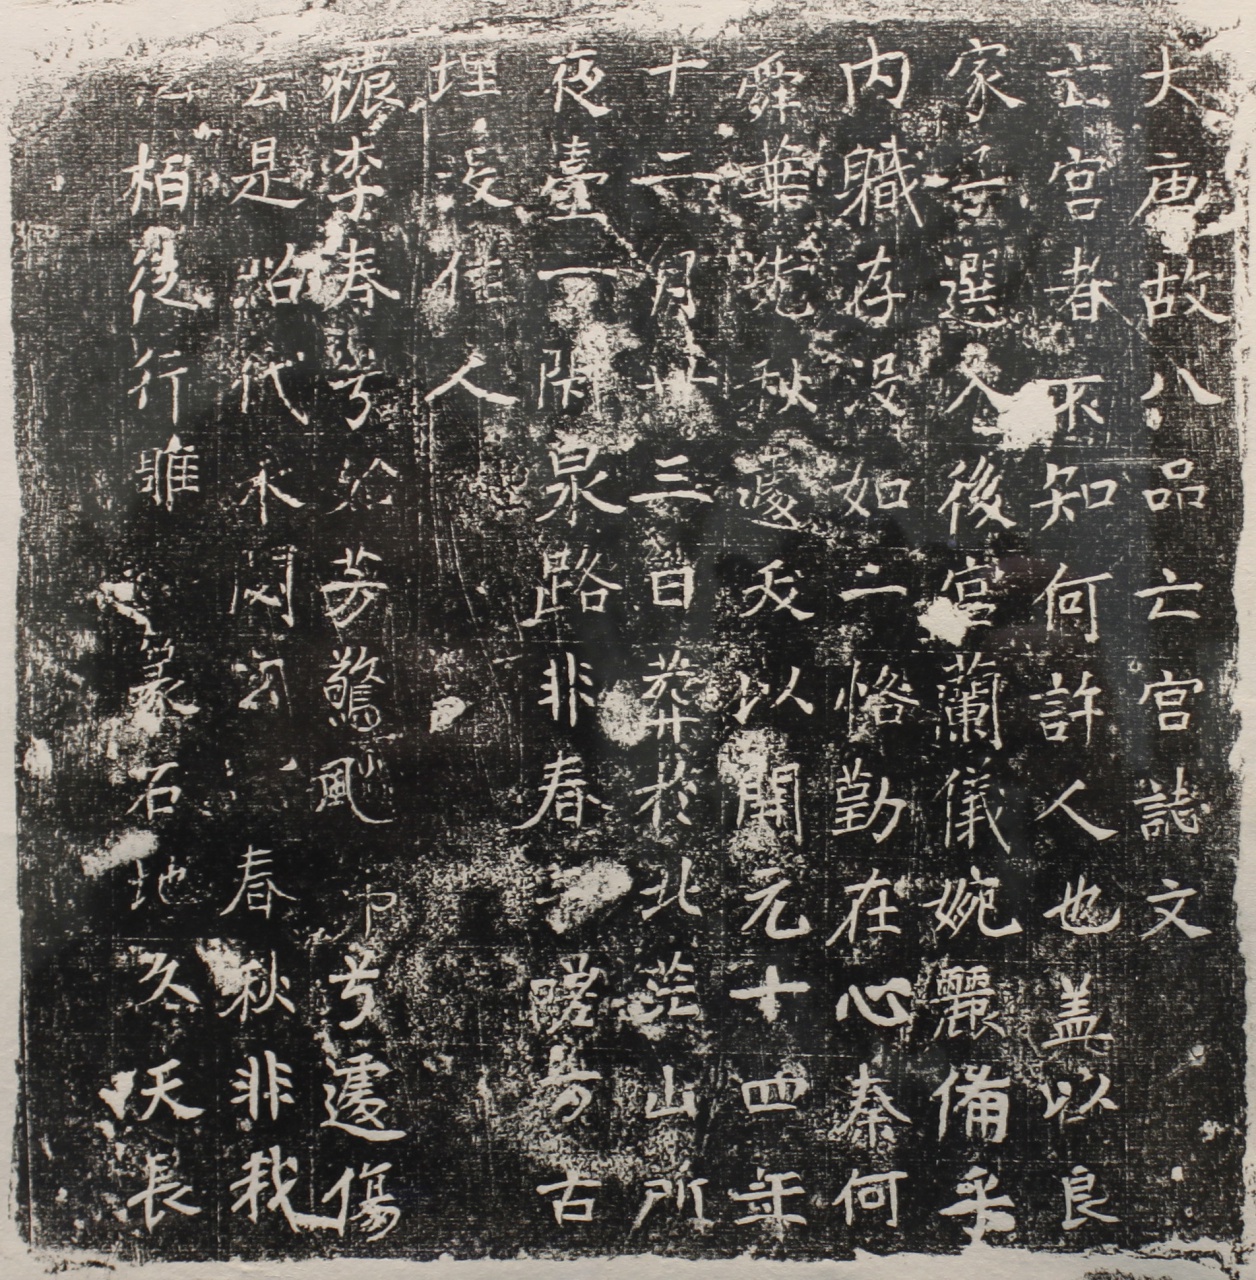 大唐故八品亡宮誌文
亡宮者不知何許人也盖以良
家子選入後宮蘭儀婉麗備乎
內職存没如一恪勤在心秦何
舜華先秋遽夭以開元十四年
十二月廿三日葬於北茫山所
夜臺一閇泉路非春嗟万古
埋没佳人
穠李春兮芳驚風兮遽傷
云是代水閱春秋非我
栢後行雖篆石地久天長